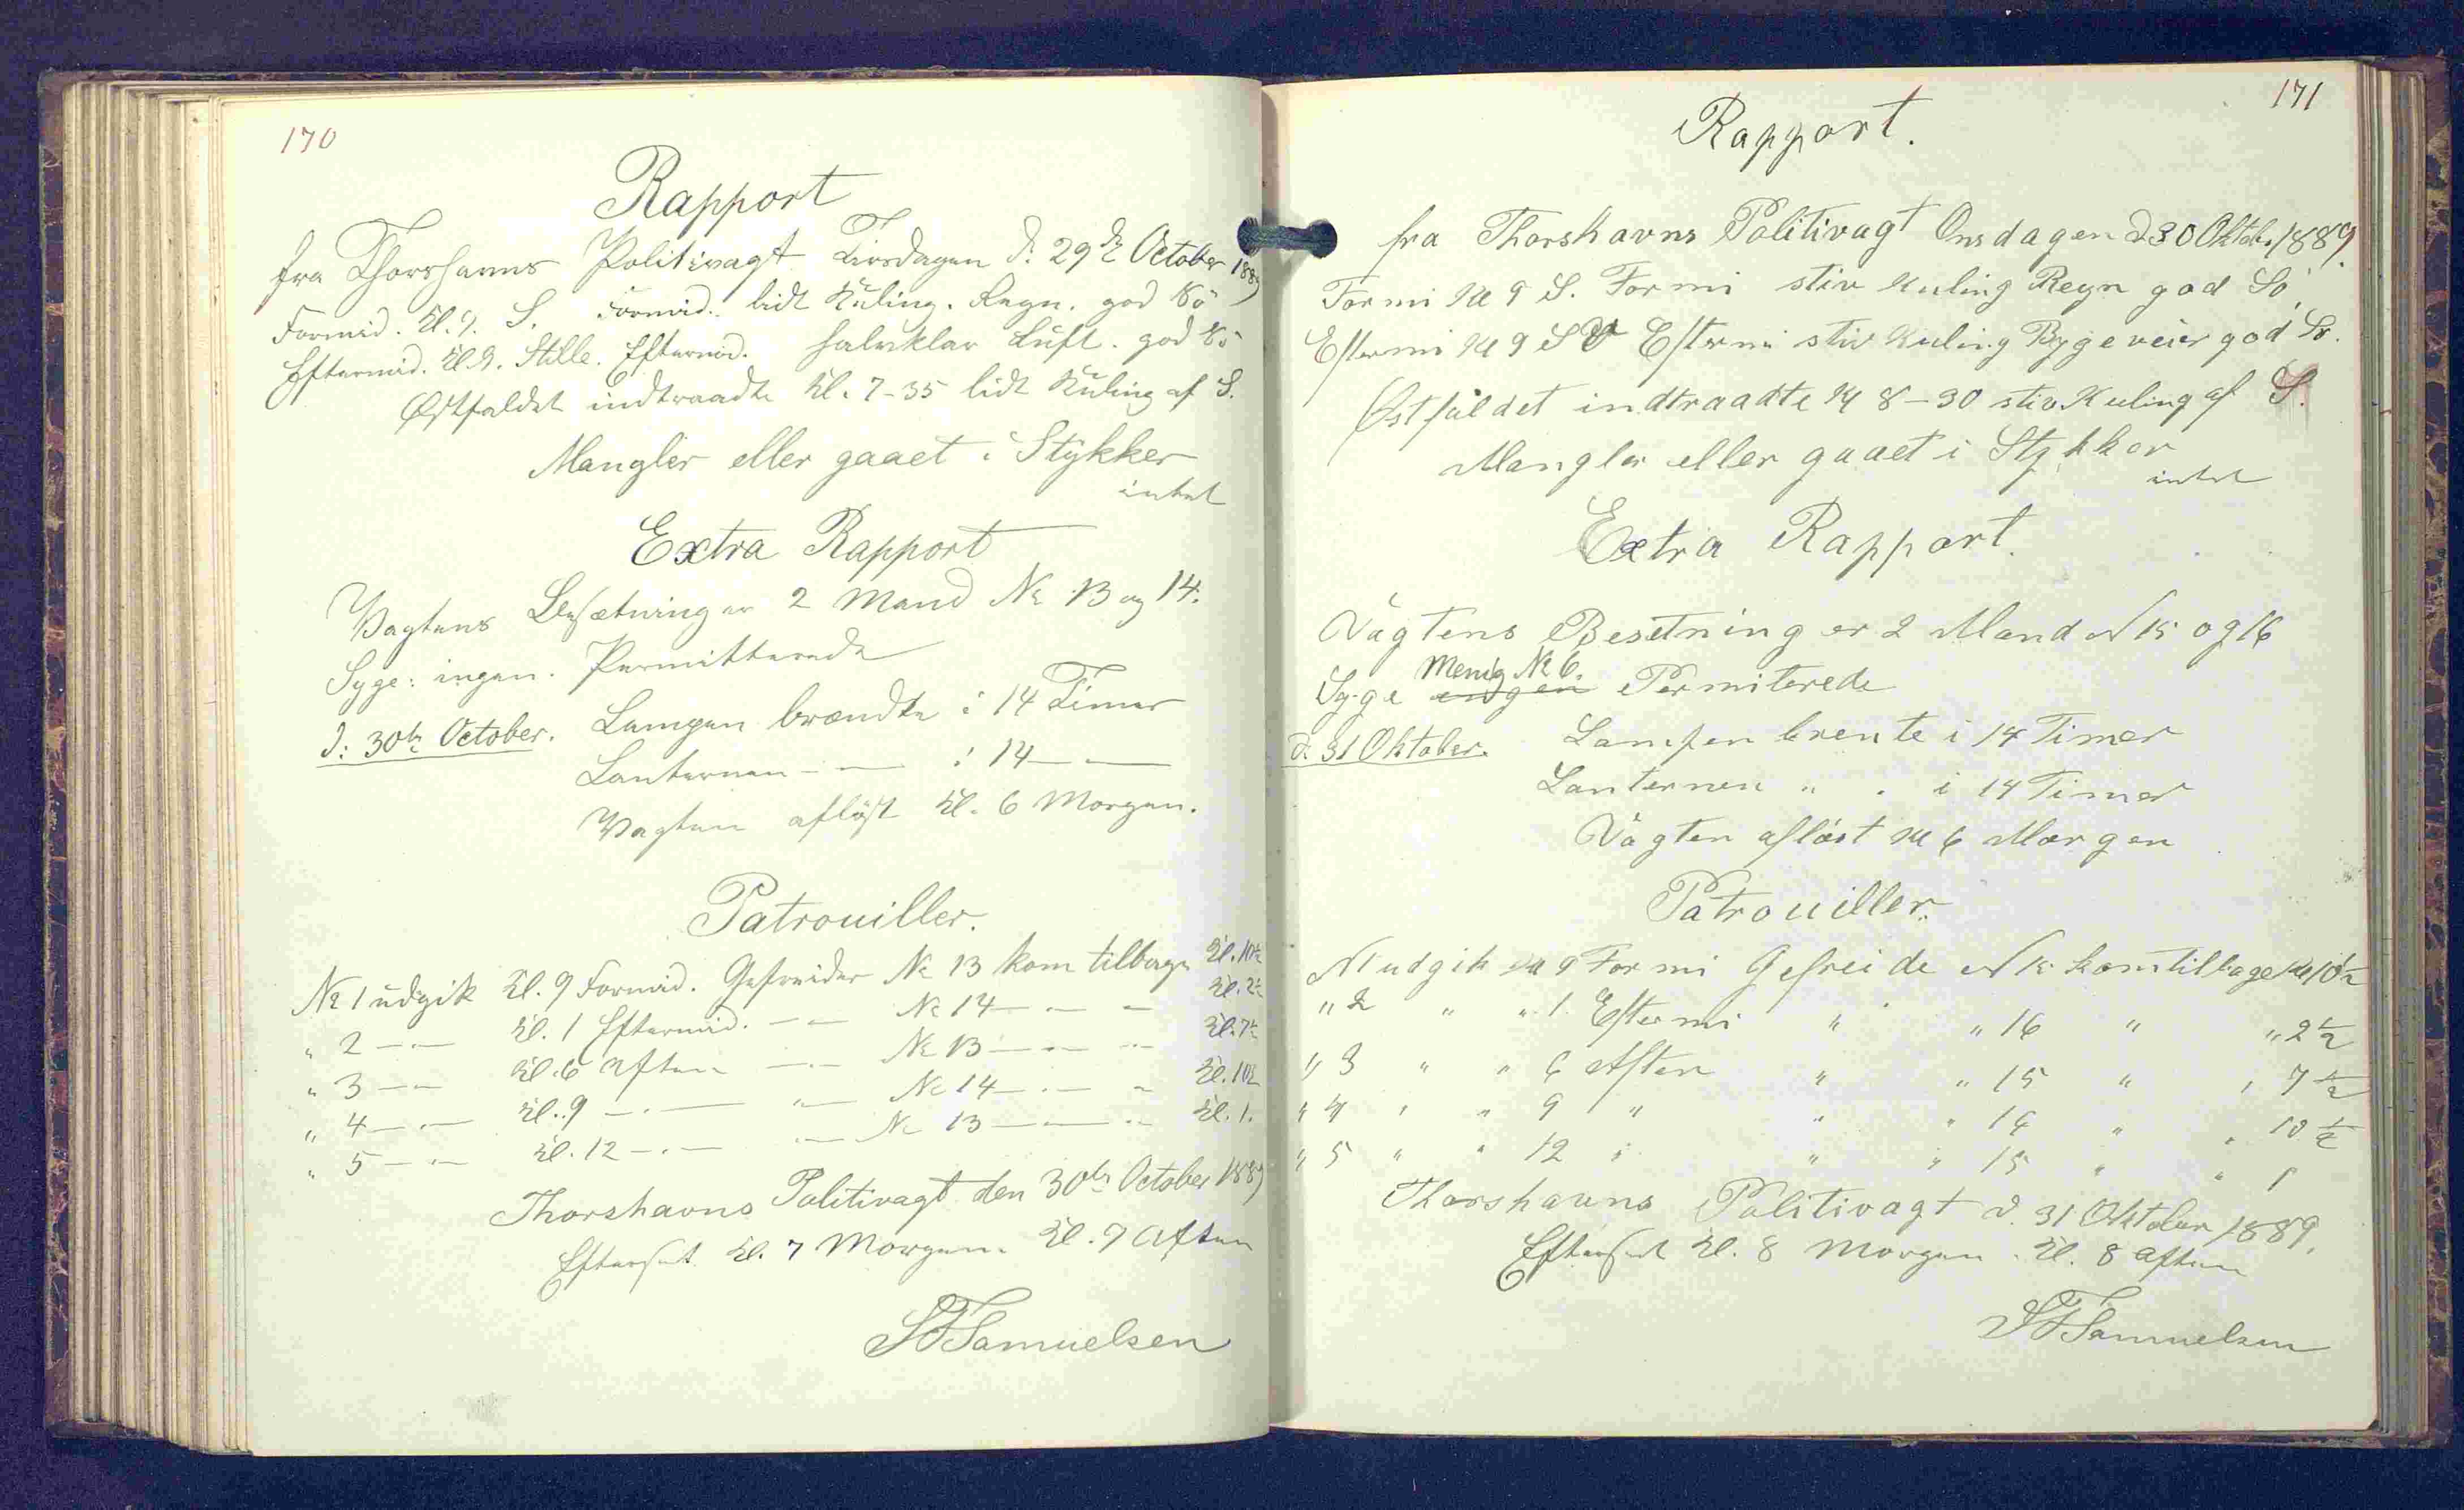 170
Rapport
fra Thorshavns Politivagt Tirsdagen d: 29de October 1889
Formid. Kl. 9. S. Formid. lidt Kuling. Regn. god Sö
Eftermid. Kl. 9. Stille. Eftermid. halvklar Luft. god Sö
Østfaldet indtraadte Kl. 7-35 lidt Kuling af S.
Mangler eller gaaet i Stykker
intet
Extra Rapport
Vagtens Besætning er 2 Mand No 13 og 14.
Syge: ingen. Permitterede
d: 30te October. Lampen brændte i 14 Timer
Lanternen - — i 14 — —
Vagten aflöst Kl. 6 Morgen.
Patrouiller.
No 1 udgik Kl. 9 Formid. Gefreider No 13 kom tilbage Kl. 10½
" 2 — " — Kl. 1 Eftermid. — " — No 14 — " — " Kl. 2½
" 3 — " — Kl. 6 Aften — " — No 13 — " — " Kl. 7½
" 4 — " — Kl. 9 — " — " — No 14 — " — " Kl. 10½
" 5 — " — Kl. 12 — " — " — No 13 — " — " Kl. 1.
Thorshavns Politivagt den 30de October 1889
Efterset Kl. 7 Morgen. Kl. 9 Aften
SFSamuelsen
171
Rapport.
fra Thorshavns Politivagt Onsdagen d 30 Oktober 1889.
Formi Kl 9 S. Formi stiv Kuling Regn god Sö
Eftermi Kl 9 SV Eftermi stiv Kuling Bygeveier god Sö.
Østfaldet indtraadte Kl 8-30 stiv Kuling af S.
Mangler eller gaaet i Stykker
intet
Extra Rapport.
Vagtens Besetning er 2 Mand N 15 og 16
Menig No 6.
Syge engen Permiterede
d. 31 Oktober. Lampen brente i 14 Timer
Lanternen " . i 14 Timer
Vagten aflöst Kl 6 Morgen
Patrouiller.
N 1 udgik Kl 9 Formi Gefreide N 15 kom tilbage Kl 10½
" 2 " " 1 Eftermi " " 16 " " 2½
" 3 " " 6 Aften " " 15 " " 7½
" 4 " " 9 " " " 16 " " 10½
" 5 " " 12 " " " 15 " " 1
Thorshavns Politivagt d. 31 Oktober 1889.
Efterset Kl. 8 Morgen. Kl. 8 Aften
SFSamuelsen